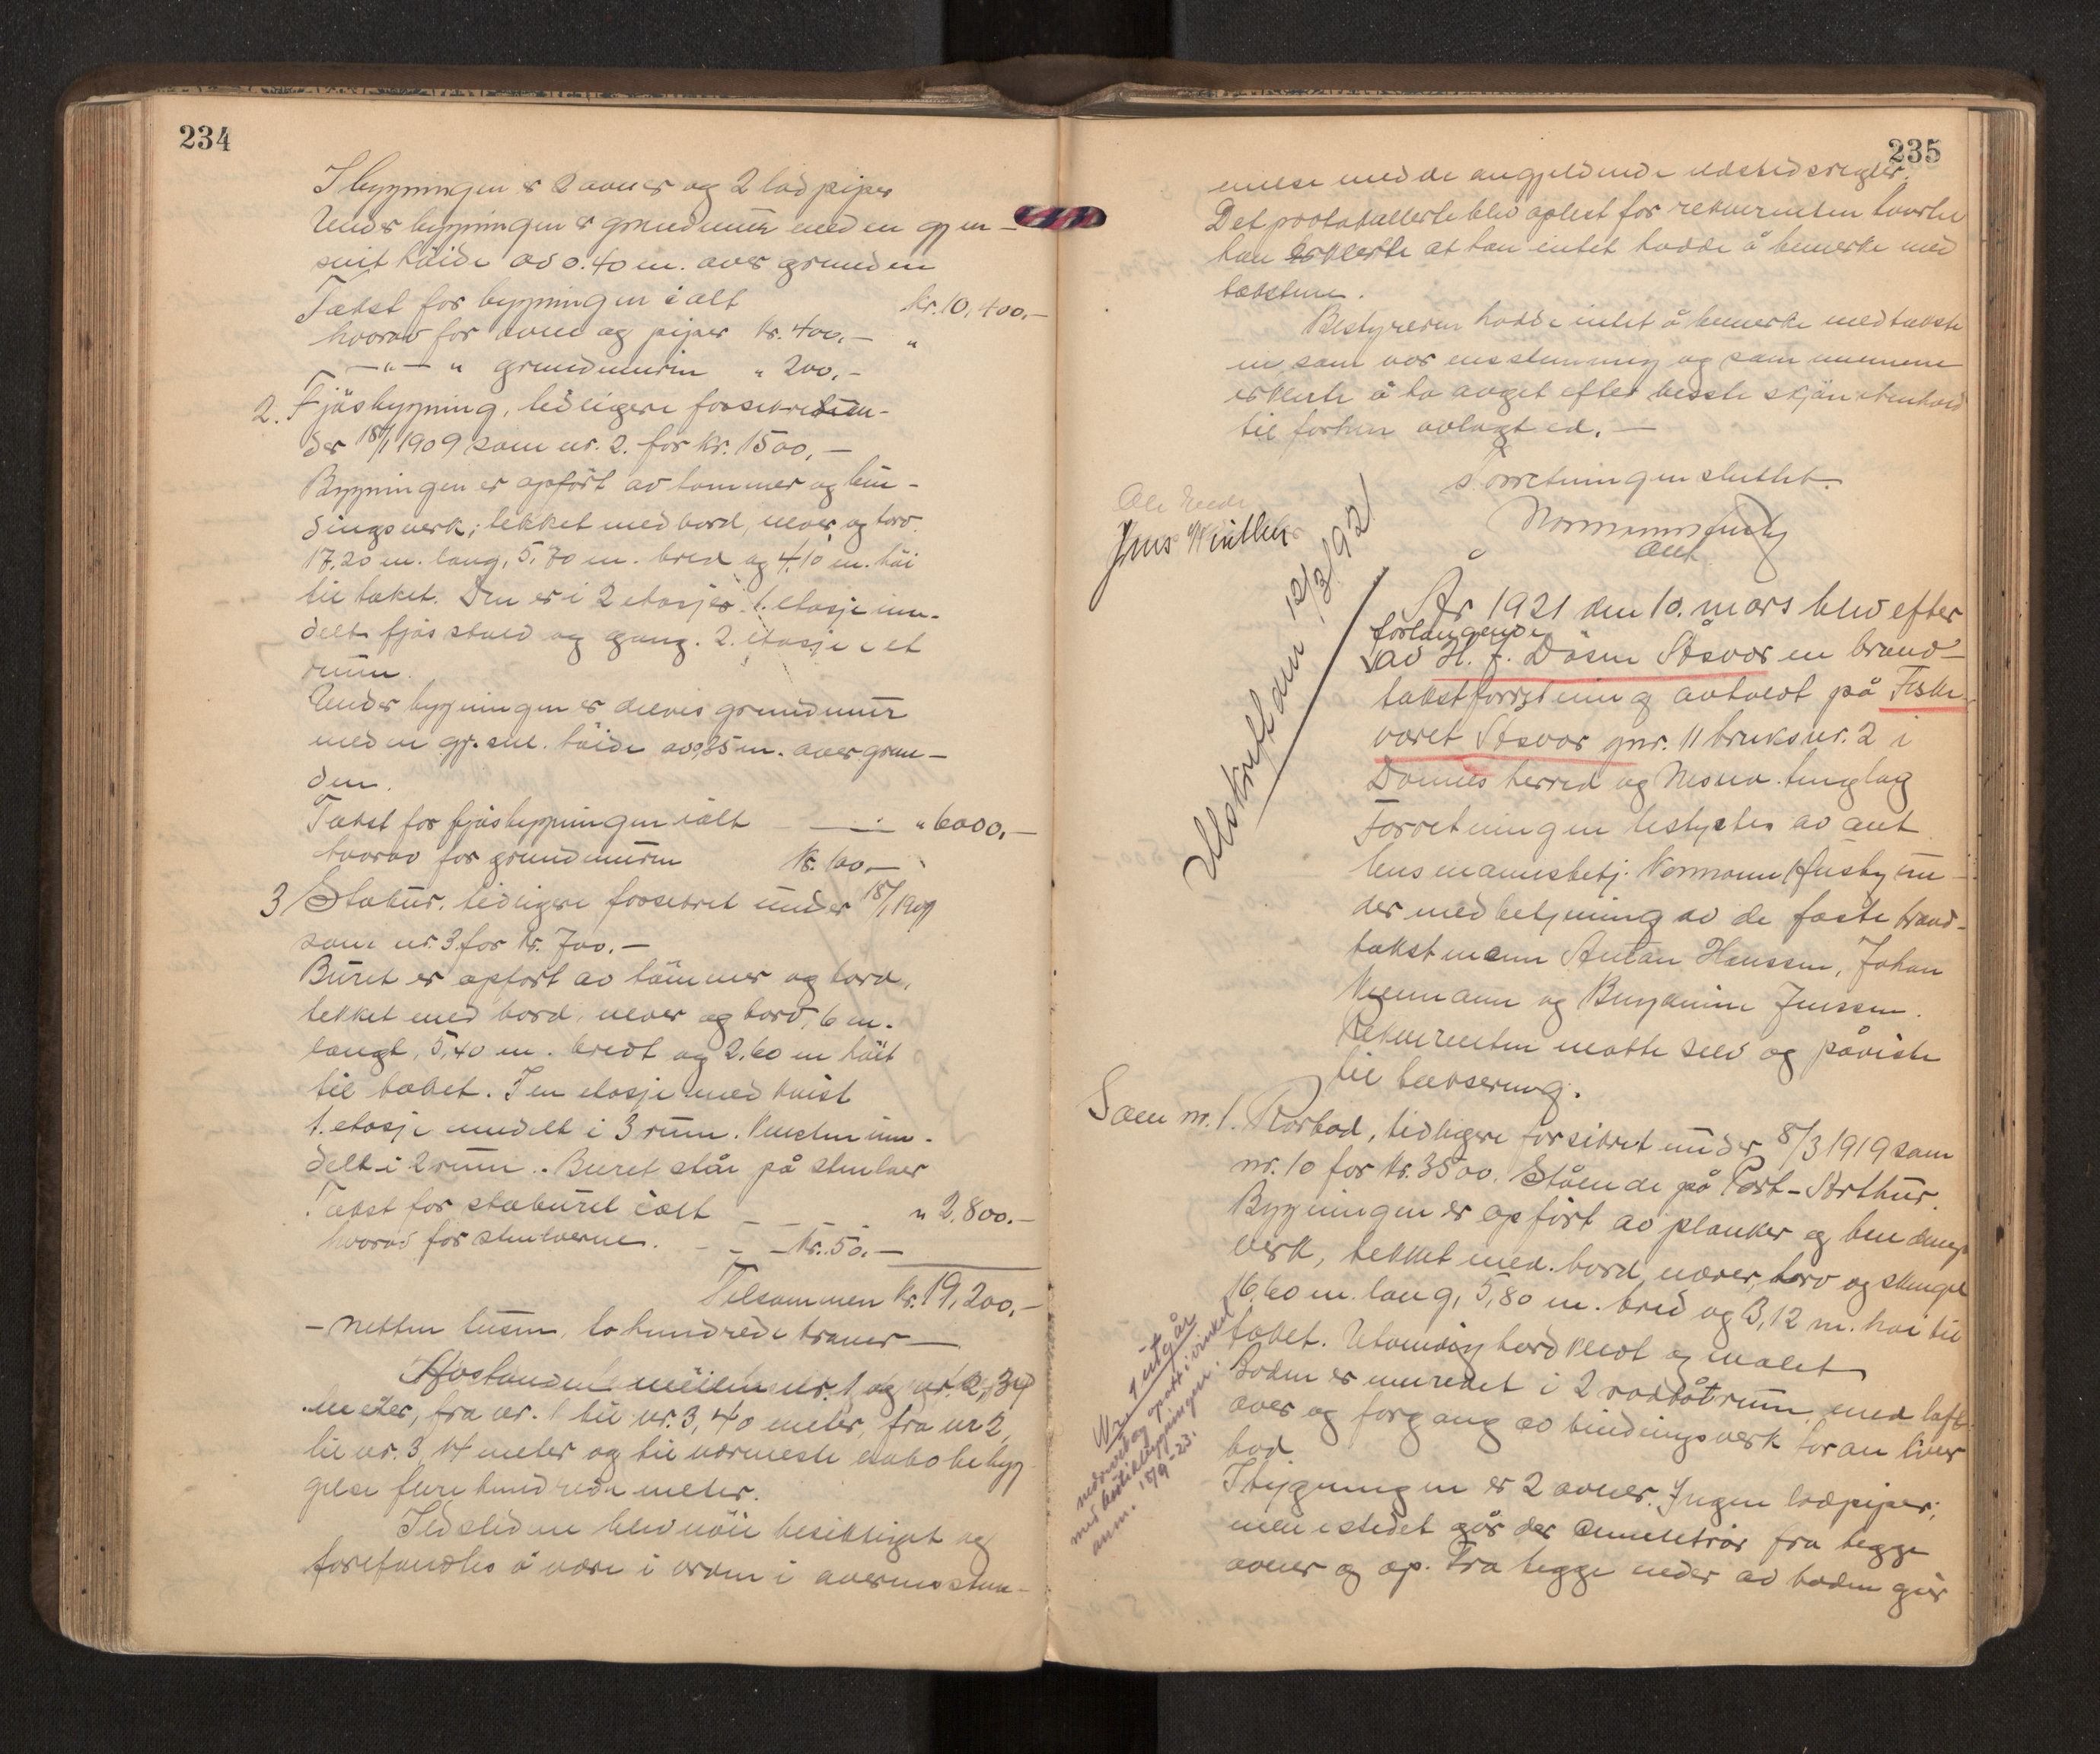 234
I bygningen er 2 ovner og 2 lodpiper
Under bygningen er grundmur med en gjen-
snit høide av 0.40 m. over grunden
Takst for bygningen ialt kr. 10,400.-
hvorav for ovne og piper kr. 400.- "
-"- " grundmuren " 200.-
2. Fjøsbygning, tidligere forsikret un-
der 18/1 1909 som nr. 2. for kr. 1500.-
Bygningen er opført av tømmer og bin-
dingsverk; tekket med bord, never og torv.
17,20 m. lang, 5,70 m. bred og 4,10 m. høi
til taket. Den er i 2 etasjer. 1. etasje inn-
delt fjøs stald og gang. 2. etasje i et
rum.
Under bygningen er delvis grundmur
med en gj.snl. høide av 0,85 m. over grun-
den.
Takst for fjøsbygningen ialt " 6000.-
hvorav for grundmuren kr. 100.-
3 Stabur. tidligere forsikret under 18/1 1909
som nr. 3 for kr. 700.-
Buret er opført av tømmer og bord,
tekket med bord, never og torv, 6 m.
langt, 5,40 m. bredt og 2,60 m høit
til taket. I en etasje med kvist
1. etasje inndelt i 3 rum. Kvisten inn-
delt i 2 rum. Buret står på stenkar
Takst for staburet ialt " 2,800.-
hvorav for stenkarene. kr. 50.-
Tilsammen kr. 19,200.-
- nitten tusen, to hundrede kroner -
Avstanden mellem nr. 1 og nr. 2, 34
meter, fra nr. 1 til nr. 3, 40 meter, fra nr 2
til nr. 3, 14 meter og til nærmeste nabobebyg-
gelse flere hundrede meter.
Ildstedene blev nøie besiktiget og
forefandtes å være i orden i overensstem-
235
melse med de angjeldende ildstedsregler.
Det protokollerte blev oplest for rekvirenten hvortil
han erklærte at han intet hadde å bemerke med
taksten.
Bestyreren hadde intet å bemerke med takst-
en som var enstemmig og som mennene
erklærte å ha avget efter beste skjøn i henhold
til forhen avlagt ed. -
Forretningen sluttet.
Normann Husby
aut
Jens Winther
Utskrift dann 12/3 1921
År 1921 den 10. mars blev efter
forlangende
av H. J. Dåsen Åsvær en brand-
takstforretning avholdt på Fiske-
været Åsvær gnr. 11 bruksnr. 2 i
Dønnes herred og Nesna tinglag
Forretningen bestyrtes av aut
lensmannsbetj. Normann Husby un-
der medbetjening av de faste brand-
takstmenn Anton Hanssen, Johan
og Benjamin Jenssen.
Rekvirenten møtte selv og påviste
til taksering.
Som nr. 1. Rorbod, tidligere forsikret under 8/3 1919 som
nr. 10 for kr. 3500. Stående på Port-Arthur.
Bygningen er opført av planker og bindings-
verk, tekket med bord, never, torv og
16,60 m. lang, 5,80 m. bred og 3,12 m. høi til
taket. Utvendig bordklædt og malet
Boden er innredet i 2 rum, med loft
over og forgang av bindingsverk foran hver
bod
I bygningen er 2 ovner. Ingen lodpiper;
men istedet går der fra begge
ovner og op. Fra begge ender av boden går
Nr. 1 utgår
nedrevet og opsatt i vinkel
med butikbygningen.
anm. 15/9-23.